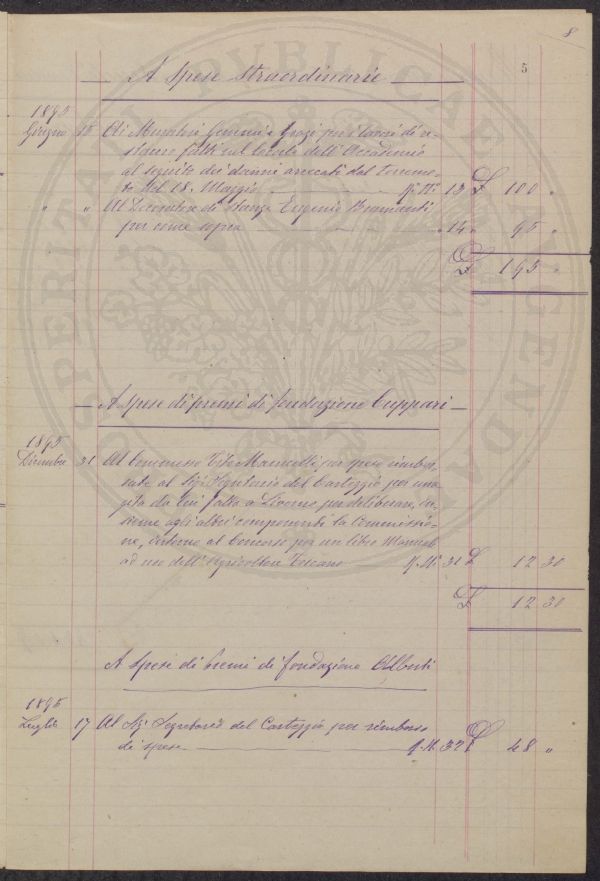 8
5
A Spese Straordinarie
1895
Giugno 15 Ai Muratori Gemmi e Grazi per lavori di re-
stauro fatti nel locale dell'Accademia
al seguito dei danni arrecati dal terremo-
to del 18. Maggio N.º 13 £ 100 "
" " Al Decoratore di stanze Eugenio Brumanti
per come sopra " 14 " 95 "
£ 195 "
A Spese di premi di fondazione Cuppari
1895
Dicembre 31 Al Commesso Tito Marucelli, per spese rimbor-
sate al Sig. Segretario del Carteggio per una
gita da lui fatta a Livorno per deliberare, in-
sieme agli altri componenti la Commissio-
ne, intorno al Concorso per un libro Manuale
ad uso dell'Agricoltore Toscano N.º 31 £ 12 30
£ 12 30
A Spese di Premi di fondazione Alberti
1895
Luglio 17 Al Sig. Segretario del Carteggio per rimborso
di spese N. 32 £ 48 "
PROSPERITATI PUBLICAE AUGENDAE